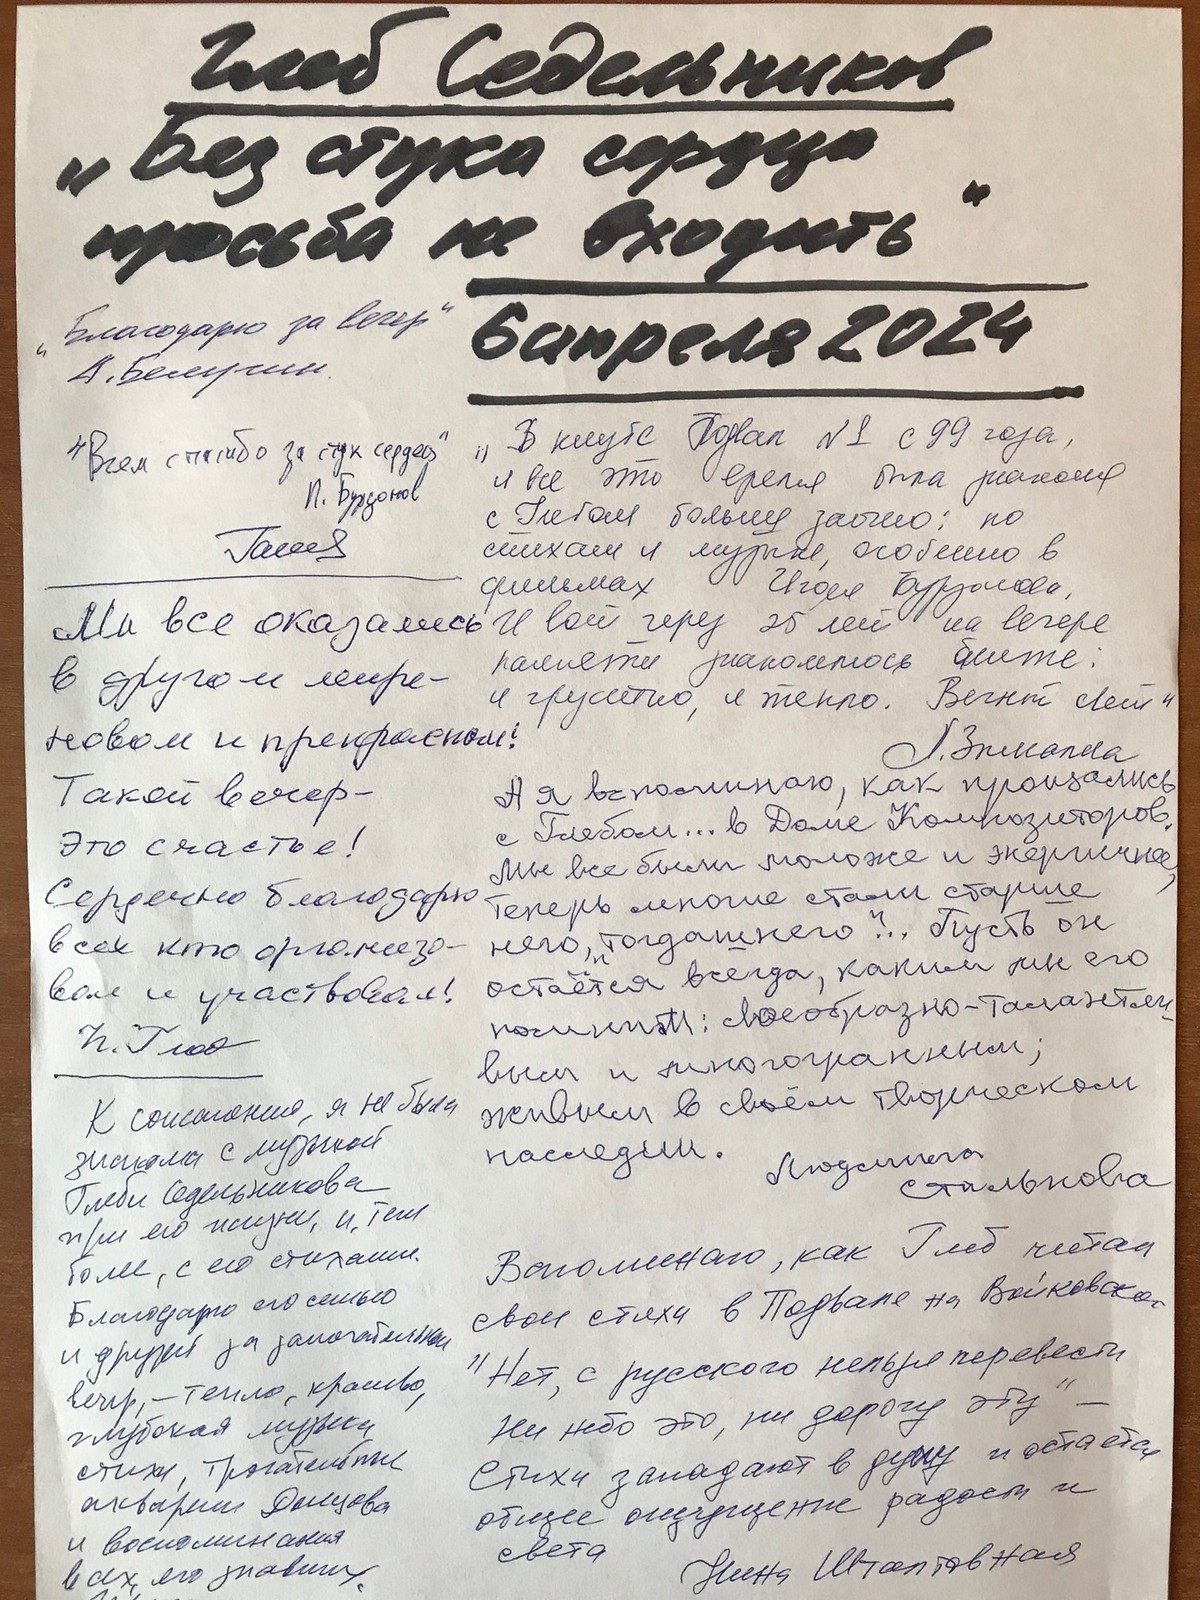 Глеб Седельников
„Без стука сердца
просьба не входить"
6 апреля 2024
„Благодарю за вечер"
"Всем спасибо за стук сердец"
Галя
Мы все оказались
в другом мире-
новом и прекрасном!
Такой вечер-
это счастье!
Сердечно благодарю
всех кто организо-
вал и участвовал!
К сожалению, я не была
знакома с музыкой
Глеба Седельникова
при его жизни, и, тем
более, с его стихами.
Благодарю его семью
и друзей за замечательный
вечер, – тепло, красиво,
глубокая музыка,
стихи, трогательные
акварели
и воспоминания
всех, его знавших.
„В клубе Подвал №1 с 99 года,
и все это время была знакома
с Глебом больше заочно: по
стихам и музыке, особенно в
фильмах Игоря Бурдонова.
И вот через 25 лет на вечере
памяти знакомлюсь ближе:
и грустно, и тепло. Вечный свет"
А я вспоминаю, как прощались
с Глебом... в Доме Композиторов.
Мы все были моложе и энергичнее,
теперь многие стали старше
него, „тогдашнего"... Пусть он
остаётся всегда, каким мы его
помним: своеобразно-талантли-
вым и многогранным;
живым в своём творческом
наследии.
Людмила
Стилькова
Вспоминаю, как Глеб читал
свои стихи в Подвале на Войковской
"Нет, с русского нельзя перевести
ни небо это, ни дорогу эту" –
Стихи западают в душу и остаётся
общее ощущение радости и
света
Нина